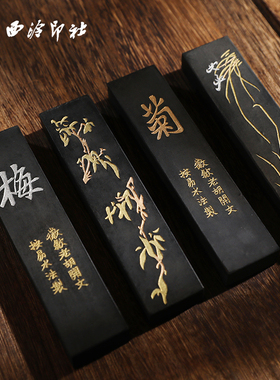 西泠印社
梅
徽歙老胡開文
按易水法製
菊
徽歙老胡開文
按易水法製